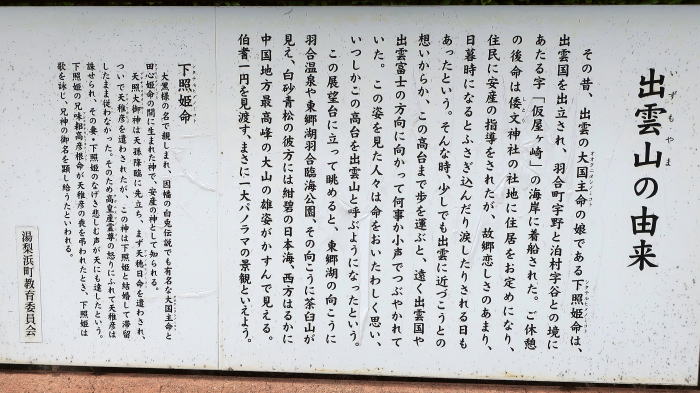 いずもやま
出雲山の由来
その昔、出雲の大国主命の娘である下照姫命は、
出雲国を出立され、羽合町宇野と泊村宇谷との境に
あたる字「仮屋ヶ崎」の海岸に着船された。ご休憩
の後命は倭文神社の社地に住居をお定めになり、
住民に安産の指導をされたが、故郷恋しさのあまり、
日暮時になるとふさぎ込んだり涙したりされる日も
あったという。そんな時、少しでも出雲に近づこうとの
想いからか、この高台まで歩を運ぶと、遠く出雲国や
出雲富士の方向に向かって何事か小声でつぶやかれて
いた。この姿を見た人々は命をおいたわしく思い、
いつしかこの高台を出雲山と呼ぶようになったという。
この展望台に立って眺めると、東郷湖の向こうに
羽合温泉や東郷湖羽合臨海公園、その向こうに茶臼山が
見え、白砂青松の彼方には紺碧の日本海、西方はるかに
中国地方最高峰の大山の雄姿がかすんで見える。
伯耆一円を見渡す、まさに一大パノラマの景観といえよう。
下照姫命
大黒様の名で親しまれ、因幡の白兎伝説でも有名な大国主命と
田心姫命の間に生まれた神で、安産の神として知られる。
天照大御神は天孫降臨に先立ち、まず天穂日命を遣わされ、
ついで天稚彦を遣わされたが、この神は下照姫と結婚して滞留
したまま従わなかった。そのため高皇産霊尊の怒りにふれて天稚彦は
誅せられ、その妻・下照姫のなげき悲しむ声が天にも達したという。
下照姫の兄味耜高彦根命が天稚彦の喪を弔われたとき、下照姫は
歌を詠じ、兄神の御名を顕し給うたといわれる。
湯梨浜町教育委員会